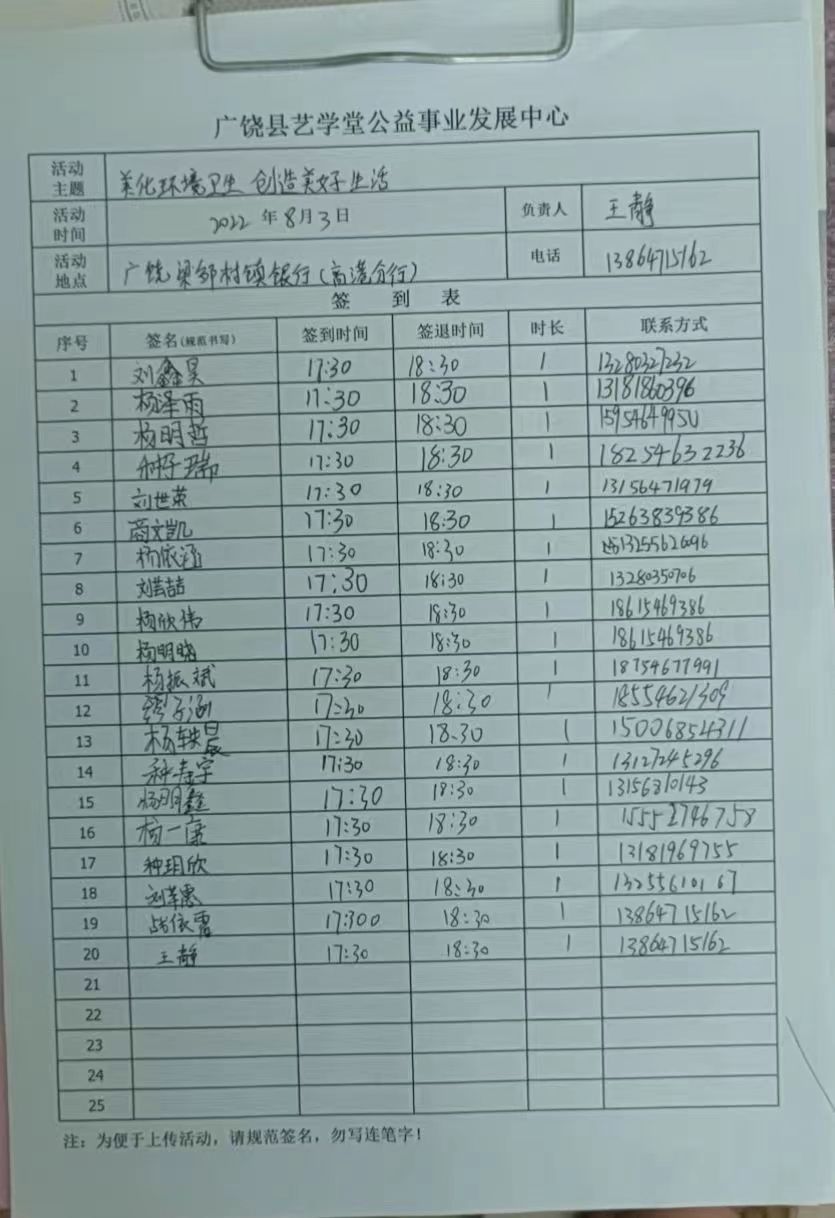 广饶县艺学堂公益事业发展中心
活动主题 美化环境卫生 创造美好生活
活动时间 2022年8月3日 负责人 王静
活动地点 广饶梁邹村镇银行(高港分行) 电话 13864715162
签 到 表
序号 签名(规范书写) 签到时间 签退时间 时长 联系方式
1 刘鑫昊 17:30 18:30 1 13280327232
2 杨泽雨 17:30 18:30 1 13181860396
3 杨明哲 17:30 18:30 1 15954649950
4 瑞 17:30 18:30 1 18254632236
5 刘世荣 17:30 18:30 1 13156471979
6 商文凯 17:30 18:30 1 15263839386
7 杨依涵 17:30 18:30 1 13255626096
8 刘喆 17:30 18:30 1 13280350706
9 杨欣伟 17:30 18:30 1 18615469386
10 杨明晓 17:30 18:30 1 18615469386
11 杨振斌 17:30 18:30 1 18754677991
12 子涵 17:30 18:30 1 18554621309
13 杨轶晨 17:30 18.30 1 15006854311
14 种寿宇 17:30 18:30 1 13127245296
15 杨明鑫 17:30 18:30 1 13156810143
16 杨一康 17:30 18:30 1 15552746758
17 种玥欣 17:30 18:30 1 13181969755
18 刘惠 17:30 18:30 1 13255610167
19 依霄 17:300 18:30 1 13864715162
20 王静 17:30 18:30 1 13864715162
21
22
23
24
25
注：为便于上传活动，请规范签名，勿写连笔字！